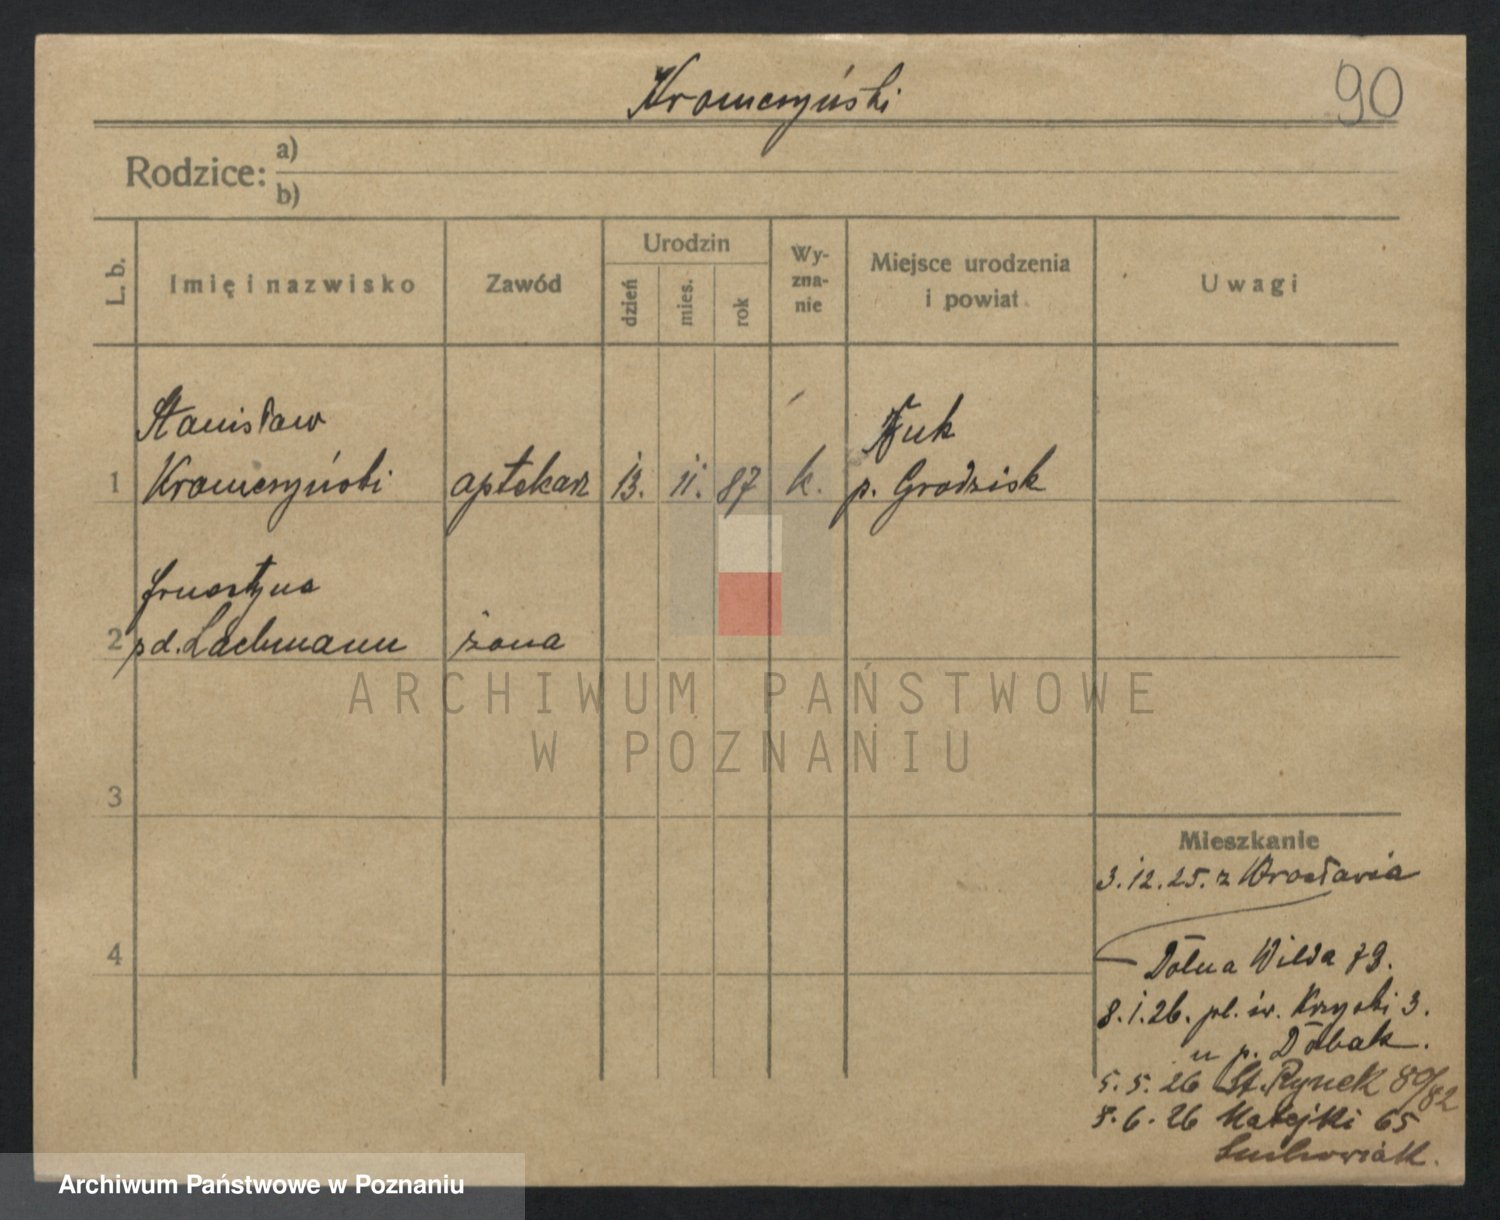 Kromczyński
90
Rodzice: a)
b)
L. b. Imię i nazwisko Zawód Urodzin dzień mies. rok Wyznanie Miejsce urodzenia i powiat Uwagi
Stanisław Buk
1 Kromczyński aptekarz 13. 11. 87 k. p. Grodzisk
2 zd. Lachmann żona
ARCHIWUM PAŃSTWOWE
W POZNANIU
3
Mieszkanie
3.12.25. z Wrocławia
4
Dolna Wilda 79.
8.1.26. pl. św. Krzyski 3.
u p. Dobak.
5.5.26 St. Rynek 80/82
8.6.26 Matejki 65
Archiwum Państwowe w Poznaniu